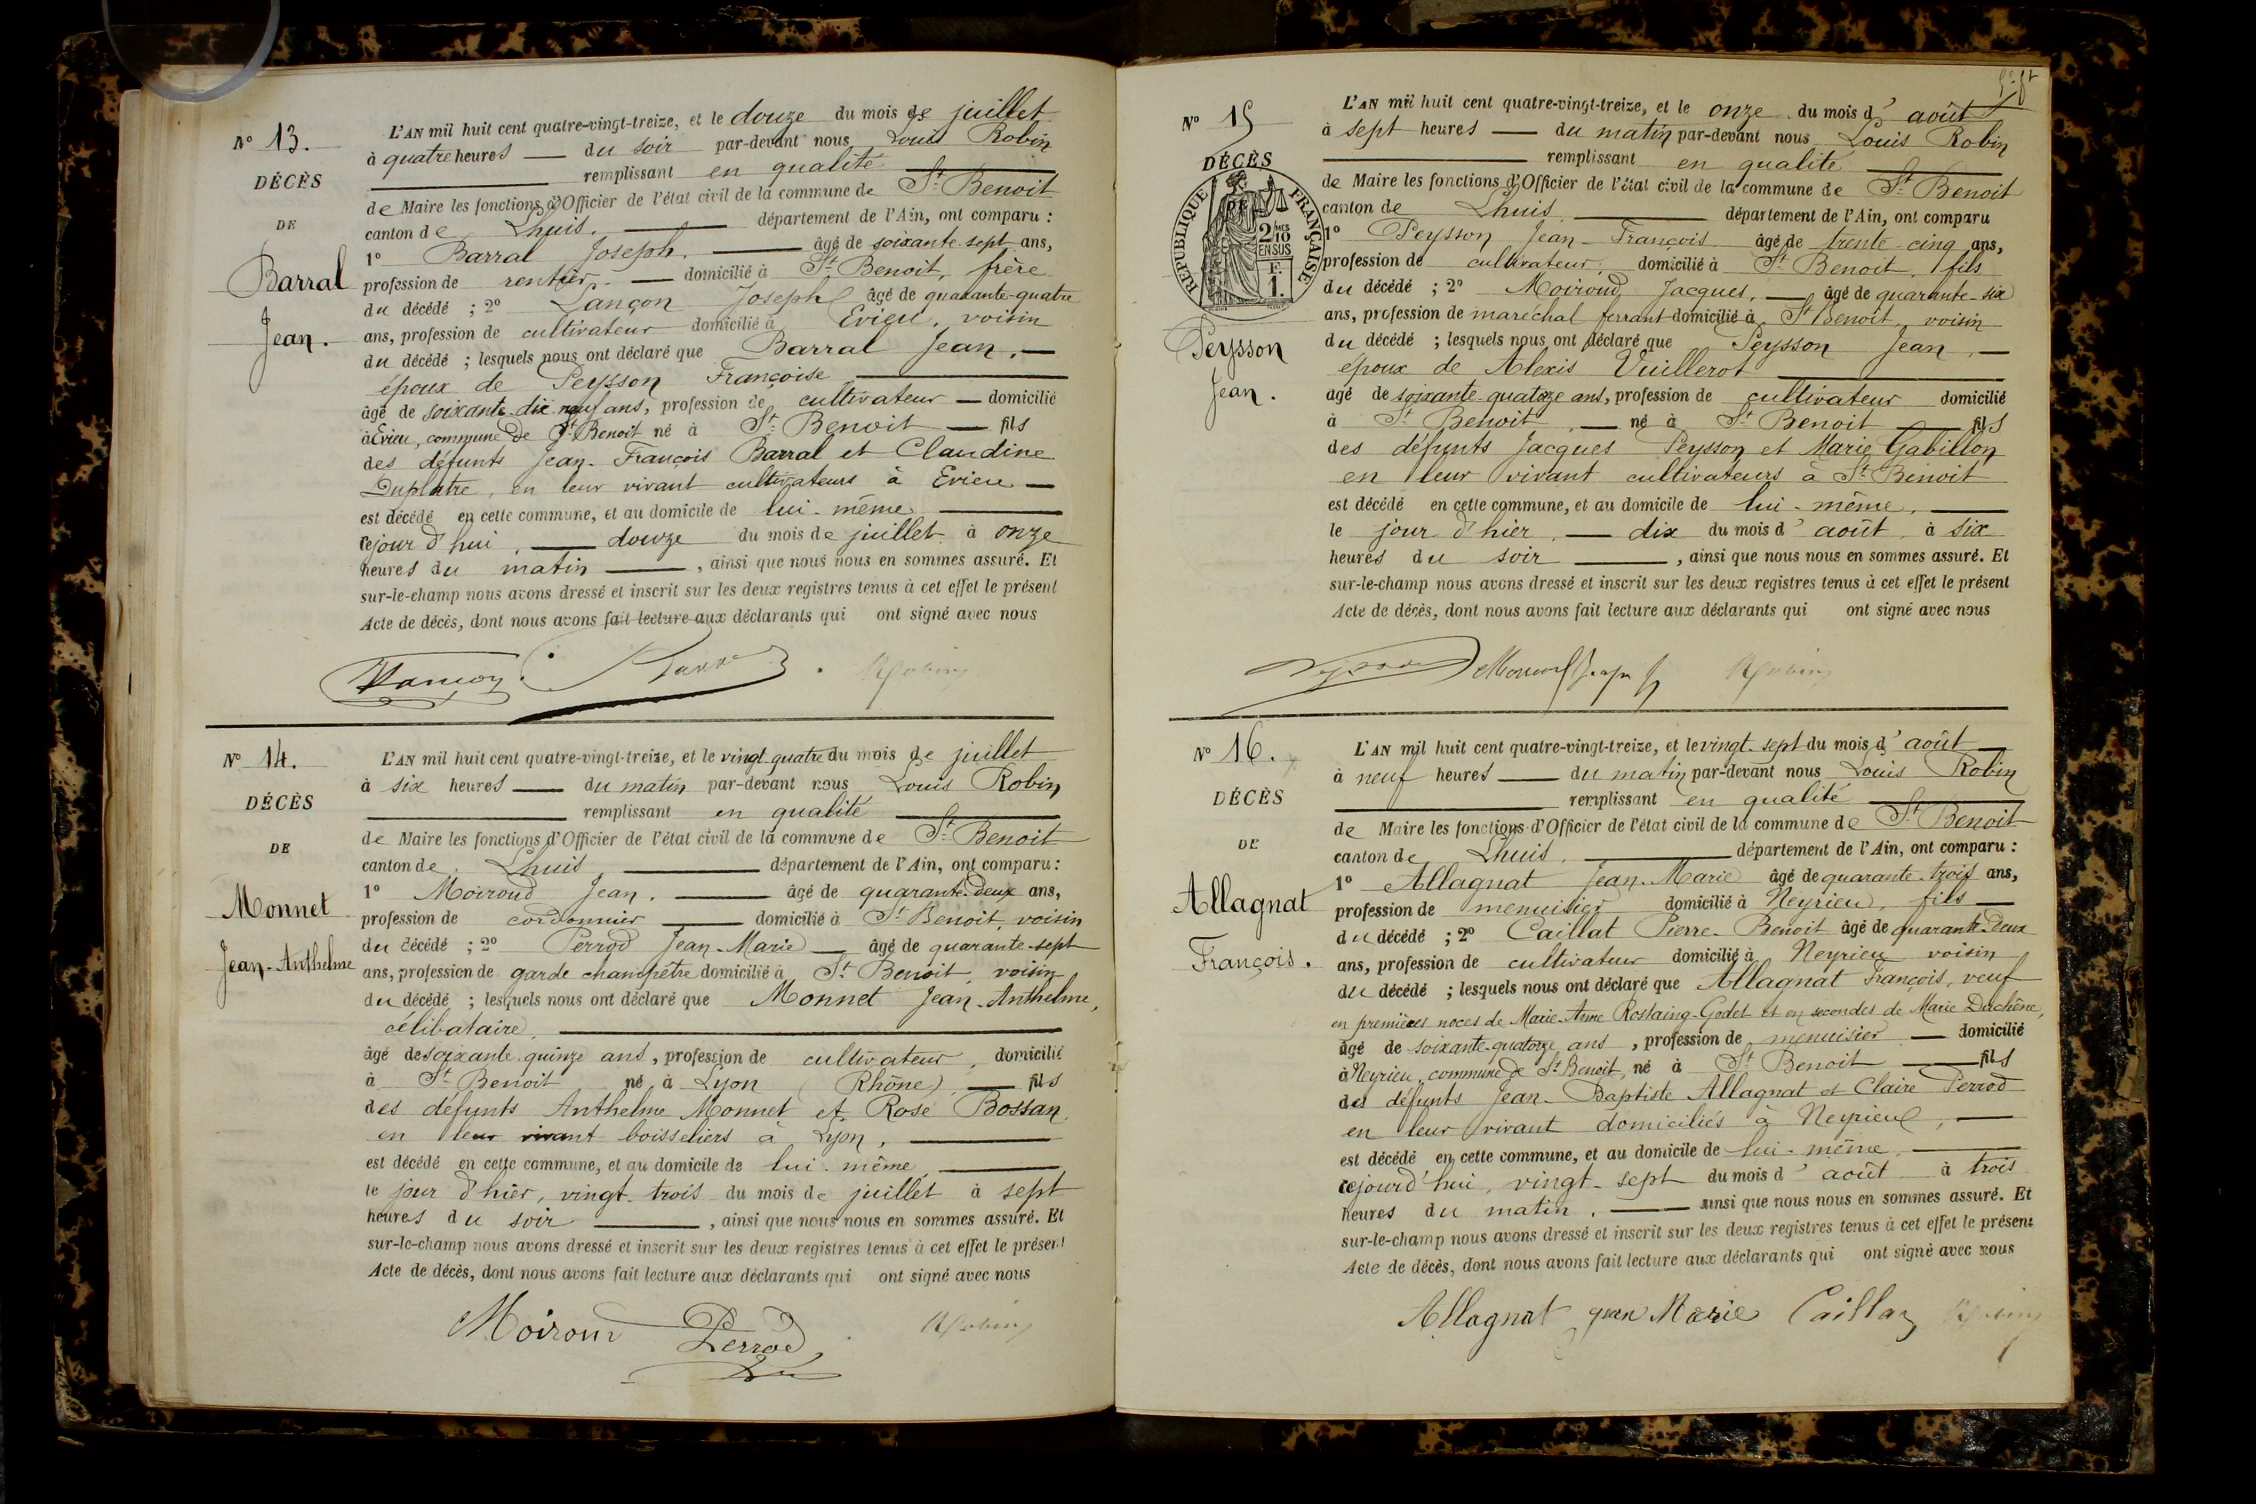 N° 13.
DÉCÈS
DE
Barral
Jean.
L'AN mil huit cent quatre-vingt-treize, et le douze du mois de juillet
à quatre heures du soir par-devant nous Louis Robin
remplissant en qualité
de Maire les fonctions d'Officier de l'état civil de la commune de St Benoit
canton de Lhuis. département de l'Ain, ont comparu :
1° Barral Joseph. âgé de soixante-sept ans,
profession de rentier. domicilié à St Benoit, frère
du décédé ; 2° Lançon Joseph âgé de quarante-quatre
ans, profession de cultivateur domicilié à Evieu, voisin
du décédé ; lesquels nous ont déclaré que Barral Jean,
époux de Peysson Françoise
âgé de soixante-dix-neuf ans, profession de cultivateur domicilié
à Evieu, commune de St Benoit né à St Benoit fils
des défunts Jean-François Barral et Claudine
Duplatre, en leur vivant cultivateurs à Evieu
est décédé en cette commune, et au domicile de lui-même
cejourd'hui, douze du mois de juillet à onze
heures du matin , ainsi que nous nous en sommes assuré. Et
sur-le-champ nous avons dressé et inscrit sur les deux registres tenus à cet effet le présent
Acte de décès, dont nous avons fait lecture aux déclarants qui ont signé avec nous
Robin
N° 14.
DÉCÈS
DE
Monnet
Jean-Anthelme
L'AN mil huit cent quatre-vingt-treize, et le vingt-quatre du mois de juillet
à six heures du matin par-devant nous Louis Robin
remplissant en qualité
de Maire les fonctions d'Officier de l'état civil de la commune de St Benoit
canton de Lhuis département de l'Ain, ont comparu :
1° Moiroud Jean. âgé de quarante-deux ans,
profession de cordonnier domicilié à St Benoit, voisin
du décédé ; 2° Perrod Jean-Marie âgé de quarante-sept
ans, profession de garde champêtre domicilié à St Benoit, voisin
du décédé ; lesquels nous ont déclaré que Monnet Jean-Anthelme,
célibataire,
âgé de soixante-quinze ans, profession de cultivateur, domicilié
à St Benoit né à Lyon (Rhône), fils
des défunts Anthelme Monnet et Rose Bossan
en leur vivant boisseliers à Lyon,
est décédé en cette commune, et au domicile de lui-même
le jour d'hier, vingt-trois du mois de juillet à sept
heures du soir , ainsi que nous nous en sommes assuré. Et
sur-le-champ nous avons dressé et inscrit sur les deux registres tenus à cet effet le présent
Acte de décès, dont nous avons fait lecture aux déclarants qui ont signé avec nous
Moiroud Perrod Robin
N° 15
DÉCÈS
DE
RÉPUBLIQUE FRANÇAISE
2 MES 10
EN SUS
F.
1.
Peysson
Jean.
L'AN mil huit cent quatre-vingt-treize, et le onze du mois d'août
à sept heures du matin par-devant nous Louis Robin
remplissant en qualité
de Maire les fonctions d'Officier de l'état civil de la commune de St Benoit
canton de Lhuis département de l'Ain, ont comparu
1° Peysson Jean-François âgé de trente-cinq ans,
profession de cultivateur, domicilié à St Benoit, fils
du décédé ; 2° Moiroud Jacques, âgé de quarante-six
ans, profession de maréchal ferrant domicilié à St Benoit, voisin
du décédé ; lesquels nous ont déclaré que Peysson Jean,
époux de Alexis Vuillerot
âgé de soixante-quatorze ans, profession de cultivateur domicilié
à St Benoit, né à St Benoit fils
des défunts Jacques Peysson et Marie Gabillon
en leur vivant cultivateurs à St Benoit
est décédé en cette commune, et au domicile de lui-même,
le jour d'hier, dix du mois d'août à six
heures du soir , ainsi que nous nous en sommes assuré. Et
sur-le-champ nous avons dressé et inscrit sur les deux registres tenus à cet effet le présent
Acte de décès, dont nous avons fait lecture aux déclarants qui ont signé avec nous
Robin
N° 16.
DÉCÈS
DE
Allagnat
François.
L'AN mil huit cent quatre-vingt-treize, et le vingt-sept du mois d'août
à neuf heures du matin par-devant nous Louis Robin
remplissant en qualité
de Maire les fonctions d'Officier de l'état civil de la commune de St Benoit
canton de Lhuis. département de l'Ain, ont comparu :
1° Allagnat Jean-Marie âgé de quarante-trois ans,
profession de menuisier domicilié à Neyrieu, fils
du décédé ; 2° Caillat Pierre-Benoit âgé de quarante-deux
ans, profession de cultivateur domicilié à Neyrieu voisin
du décédé ; lesquels nous ont déclaré que Allagnat François, veuf
en premières noces de Marie-Anne Rostaing-Godet et en secondes de Marie Duchêne,
âgé de soixante-quatorze ans, profession de menuisier domicilié
à Neyrieu, commune de St Benoit, né à St Benoit fils
des défunts Jean-Baptiste Allagnat et Claire Perrod
en leur vivant domiciliés à Neyrieu,
est décédé en cette commune, et au domicile de lui-même,
cejourd'hui, vingt-sept du mois d'août à trois
heures du matin, ainsi que nous nous en sommes assuré. Et
sur-le-champ nous avons dressé et inscrit sur les deux registres tenus à cet effet le présent
Acte de décès, dont nous avons fait lecture aux déclarants qui ont signé avec nous
Allagnat jean Marie Caillat Robin